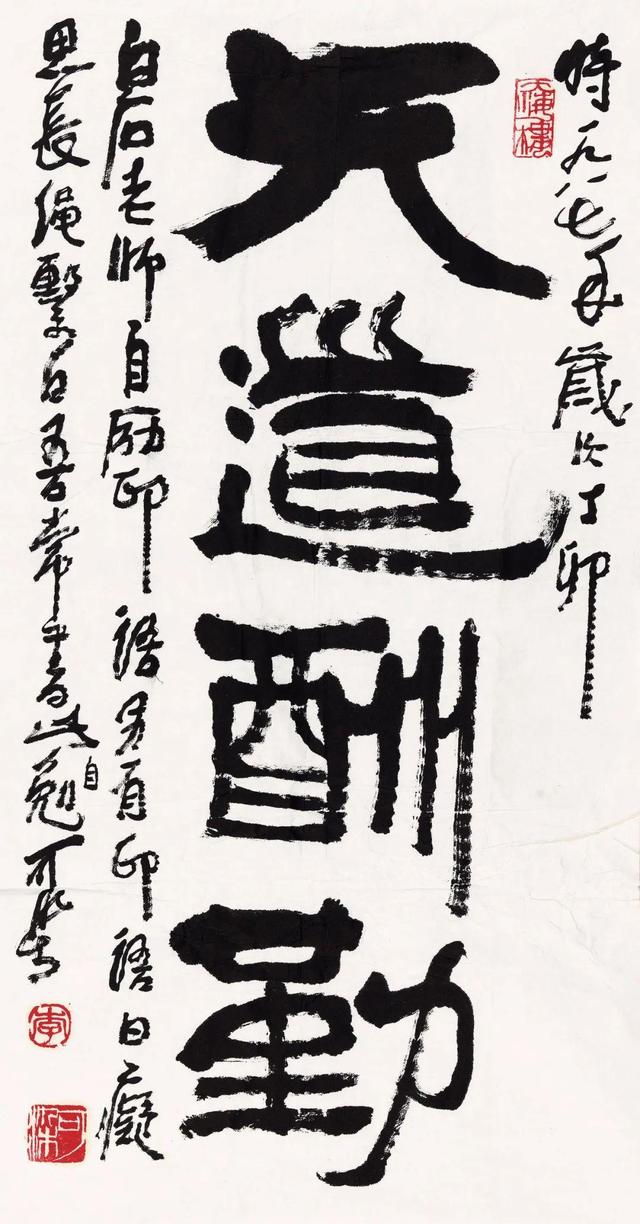 時一九八七年歲次丁卯
天道酬勤
白石老師自励印語另有印語曰癡
思長繩繫日吾常書此自勉可染書
李
可染